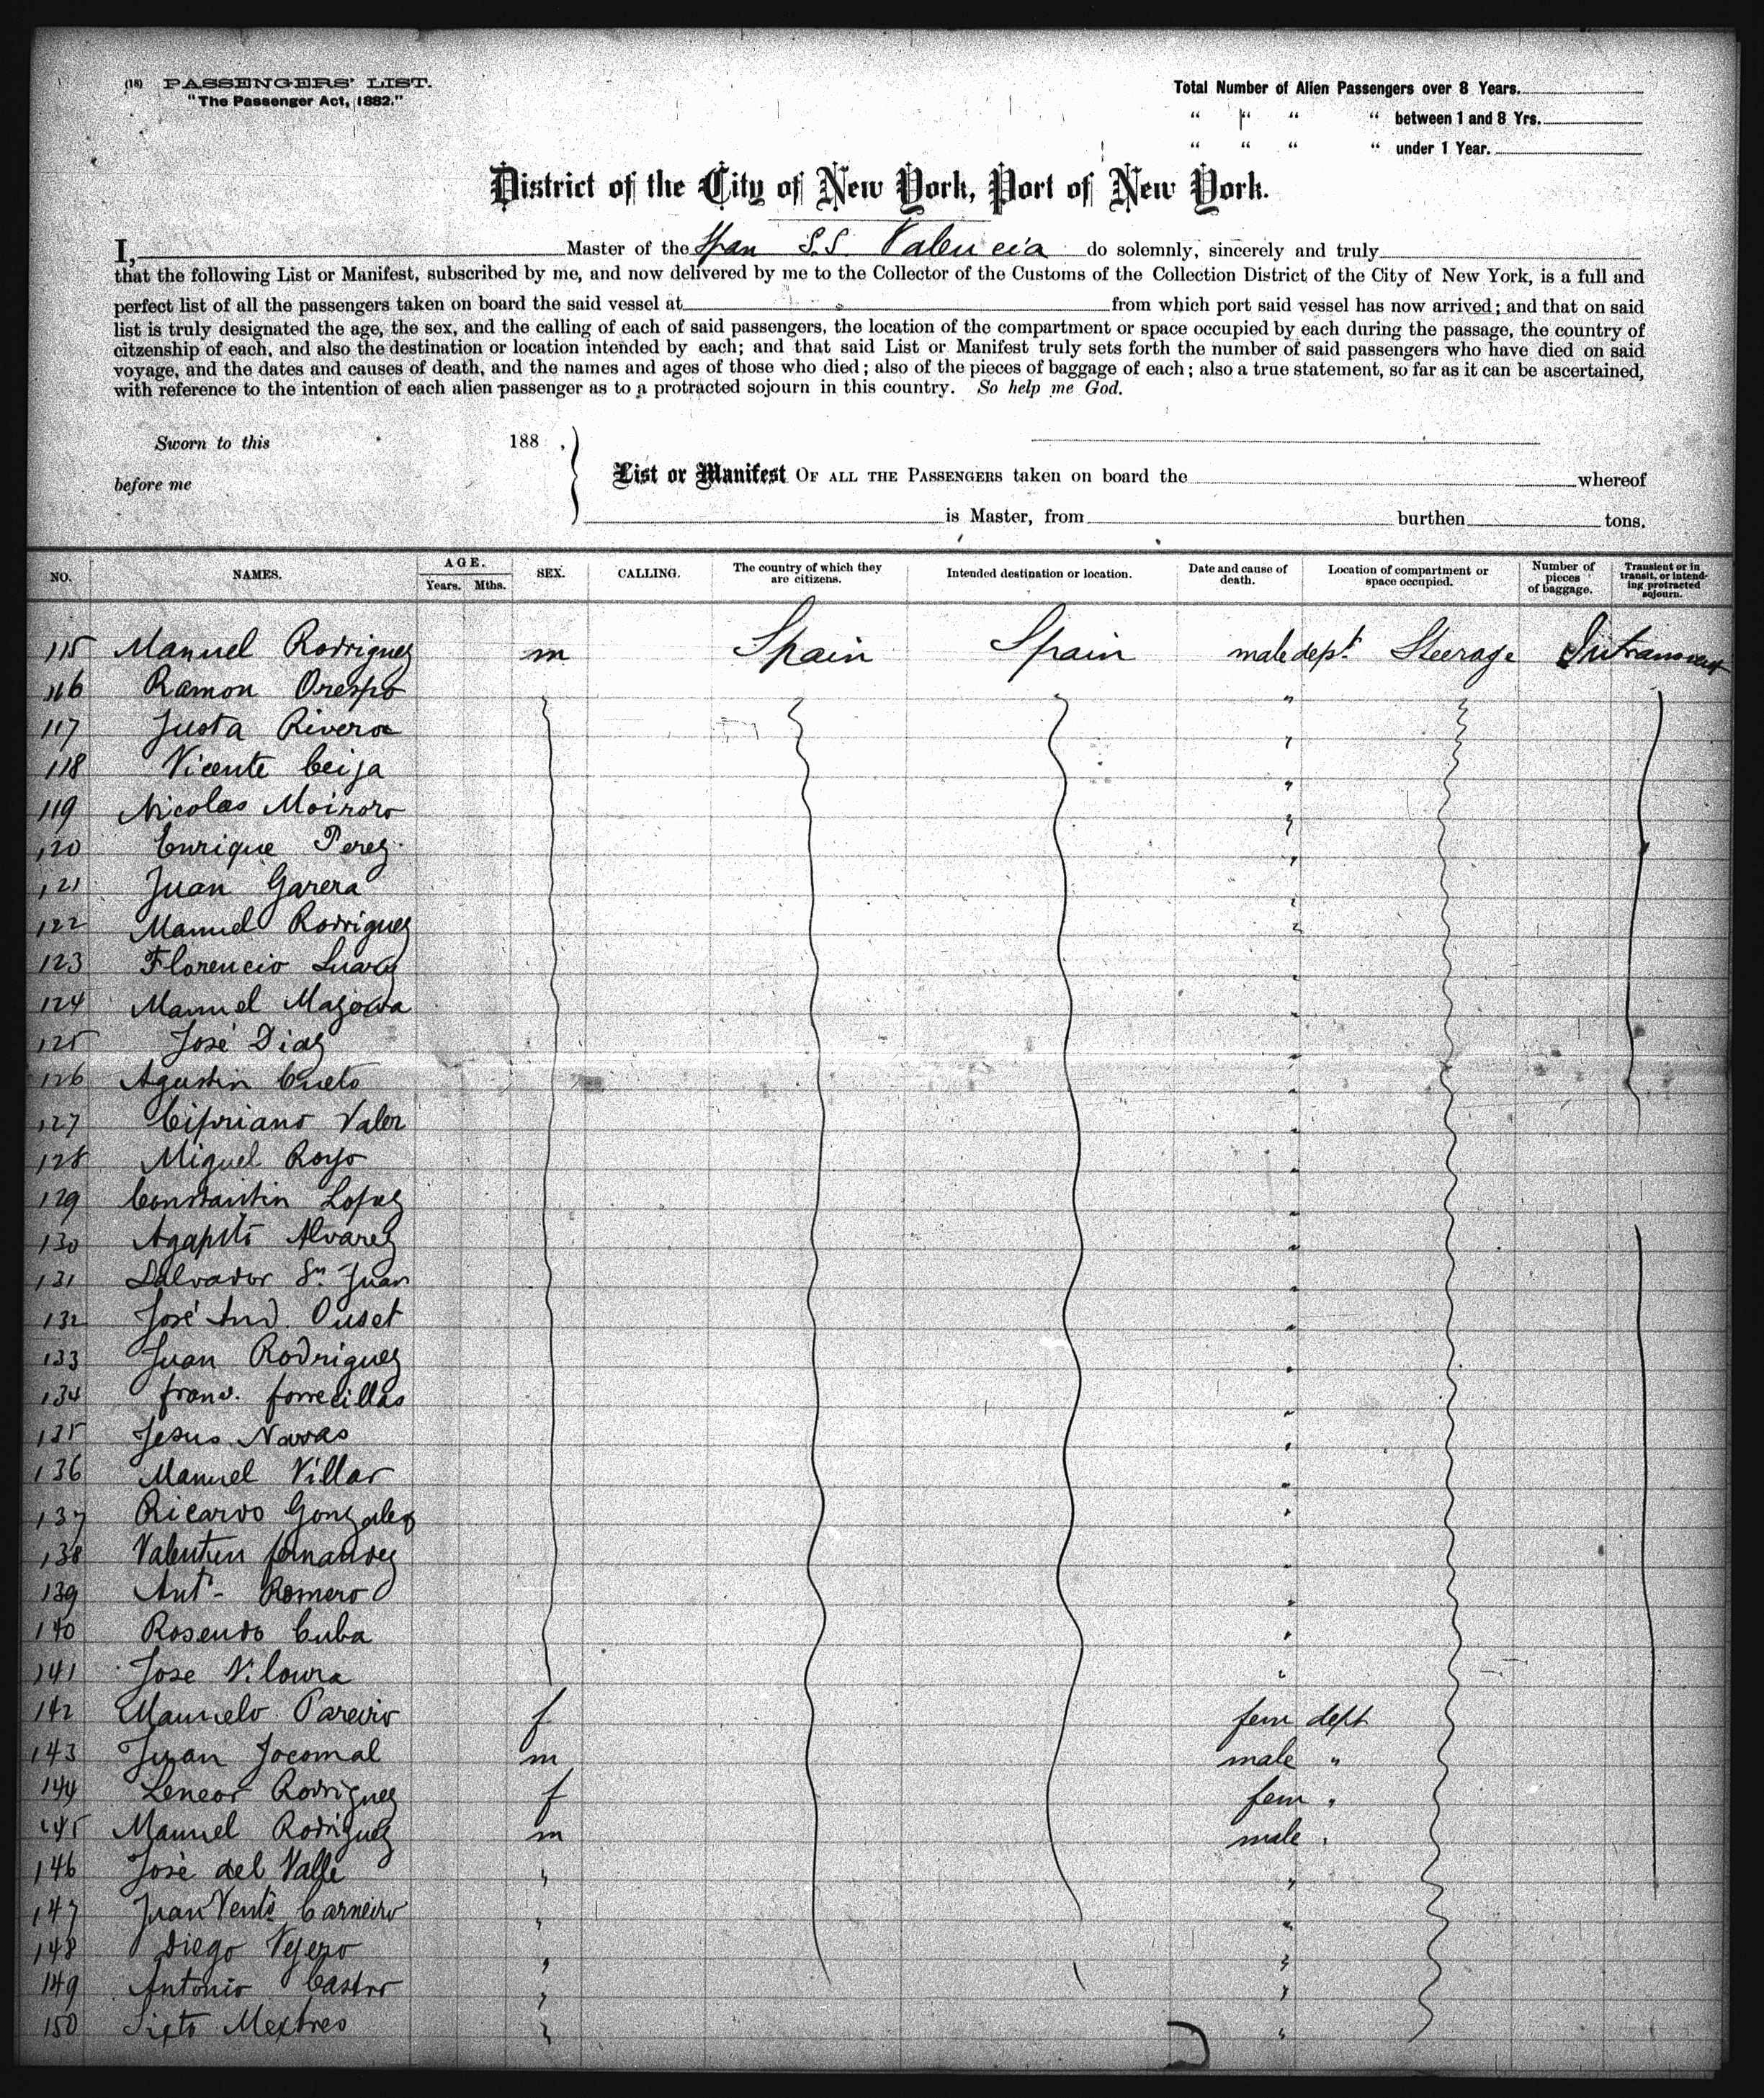 (18) PASSENGERS' LIST.
"The Passenger Act, 1882."
Total Number of Alien Passengers over 8 Years.
" " " " between 1 and 8 Yrs.
" " " " under 1 Year.
District of the City of New York, Port of New York.
I, Master of the Span S.S. Valencia do solemnly, sincerely and truly
that the following List or Manifest, subscribed by me, and now delivered by me to the Collector of the Customs of the Collection District of the City of New York, is a full and
perfect list of all the passengers taken on board the said vessel at from which port said vessel has now arrived; and that on said
list is truly designated the age, the sex, and the calling of each of said passengers, the location of the compartment or space occupied by each during the passage, the country of
citzenship of each, and also the destination or location intended by each; and that said List or Manifest truly sets forth the number of said passengers who have died on said
voyage, and the dates and causes of death, and the names and ages of those who died; also of the pieces of baggage of each; also a true statement, so far as it can be ascertained,
with reference to the intention of each alien passenger as to a protracted sojourn in this country. So help me God.
Sworn to this 188 ,
before me
List or Manifest OF ALL THE PASSENGERS taken on board the whereof
is Master, from burthen tons.
NO. NAMES. AGE. Years. Mths. SEX. CALLING. The country of which they are citizens. Intended destination or location. Date and cause of death. Location of compartment or space occupied. Number of pieces of baggage. Transient or in transit, or intending protracted sojourn.
115 Manuel Rodriguez m Spain Spain male dept Steerage
116 Ramon Orespo "
117 Justa Rivera "
118 Vicente Ceija "
119 Nicolas "
120 Enrique Perez "
121 Juan Garera "
122 Manuel Rodriguez "
123 Florencio Suarez "
124 Manuel "
125 José Diaz "
126 Agustin Cueto "
127 Cipriano Valer "
128 Miguel Royo "
129 Constantin Lopez "
130 Agapito Alvarez "
131 Salvador Sn Juan "
132 José Ouset "
133 Juan Rodriguez "
134 "
135 Jesus Navas "
136 Manuel Villar "
137 Ricardo Gonzalez "
138 Valentin fernandez "
139 Anto Romero "
140 Rosendo Cuba "
141 Jose "
142 Manuelo Pareiro f fem dept
143 Juan Jocomal m male "
144 Leneor Rodriguez f fem "
145 Manuel Rodriguez m male "
146 José del Valle " "
147 Juan Carneiro " "
148 Diego " "
149 Antonio Castro " "
150 Sixto Mextres " "